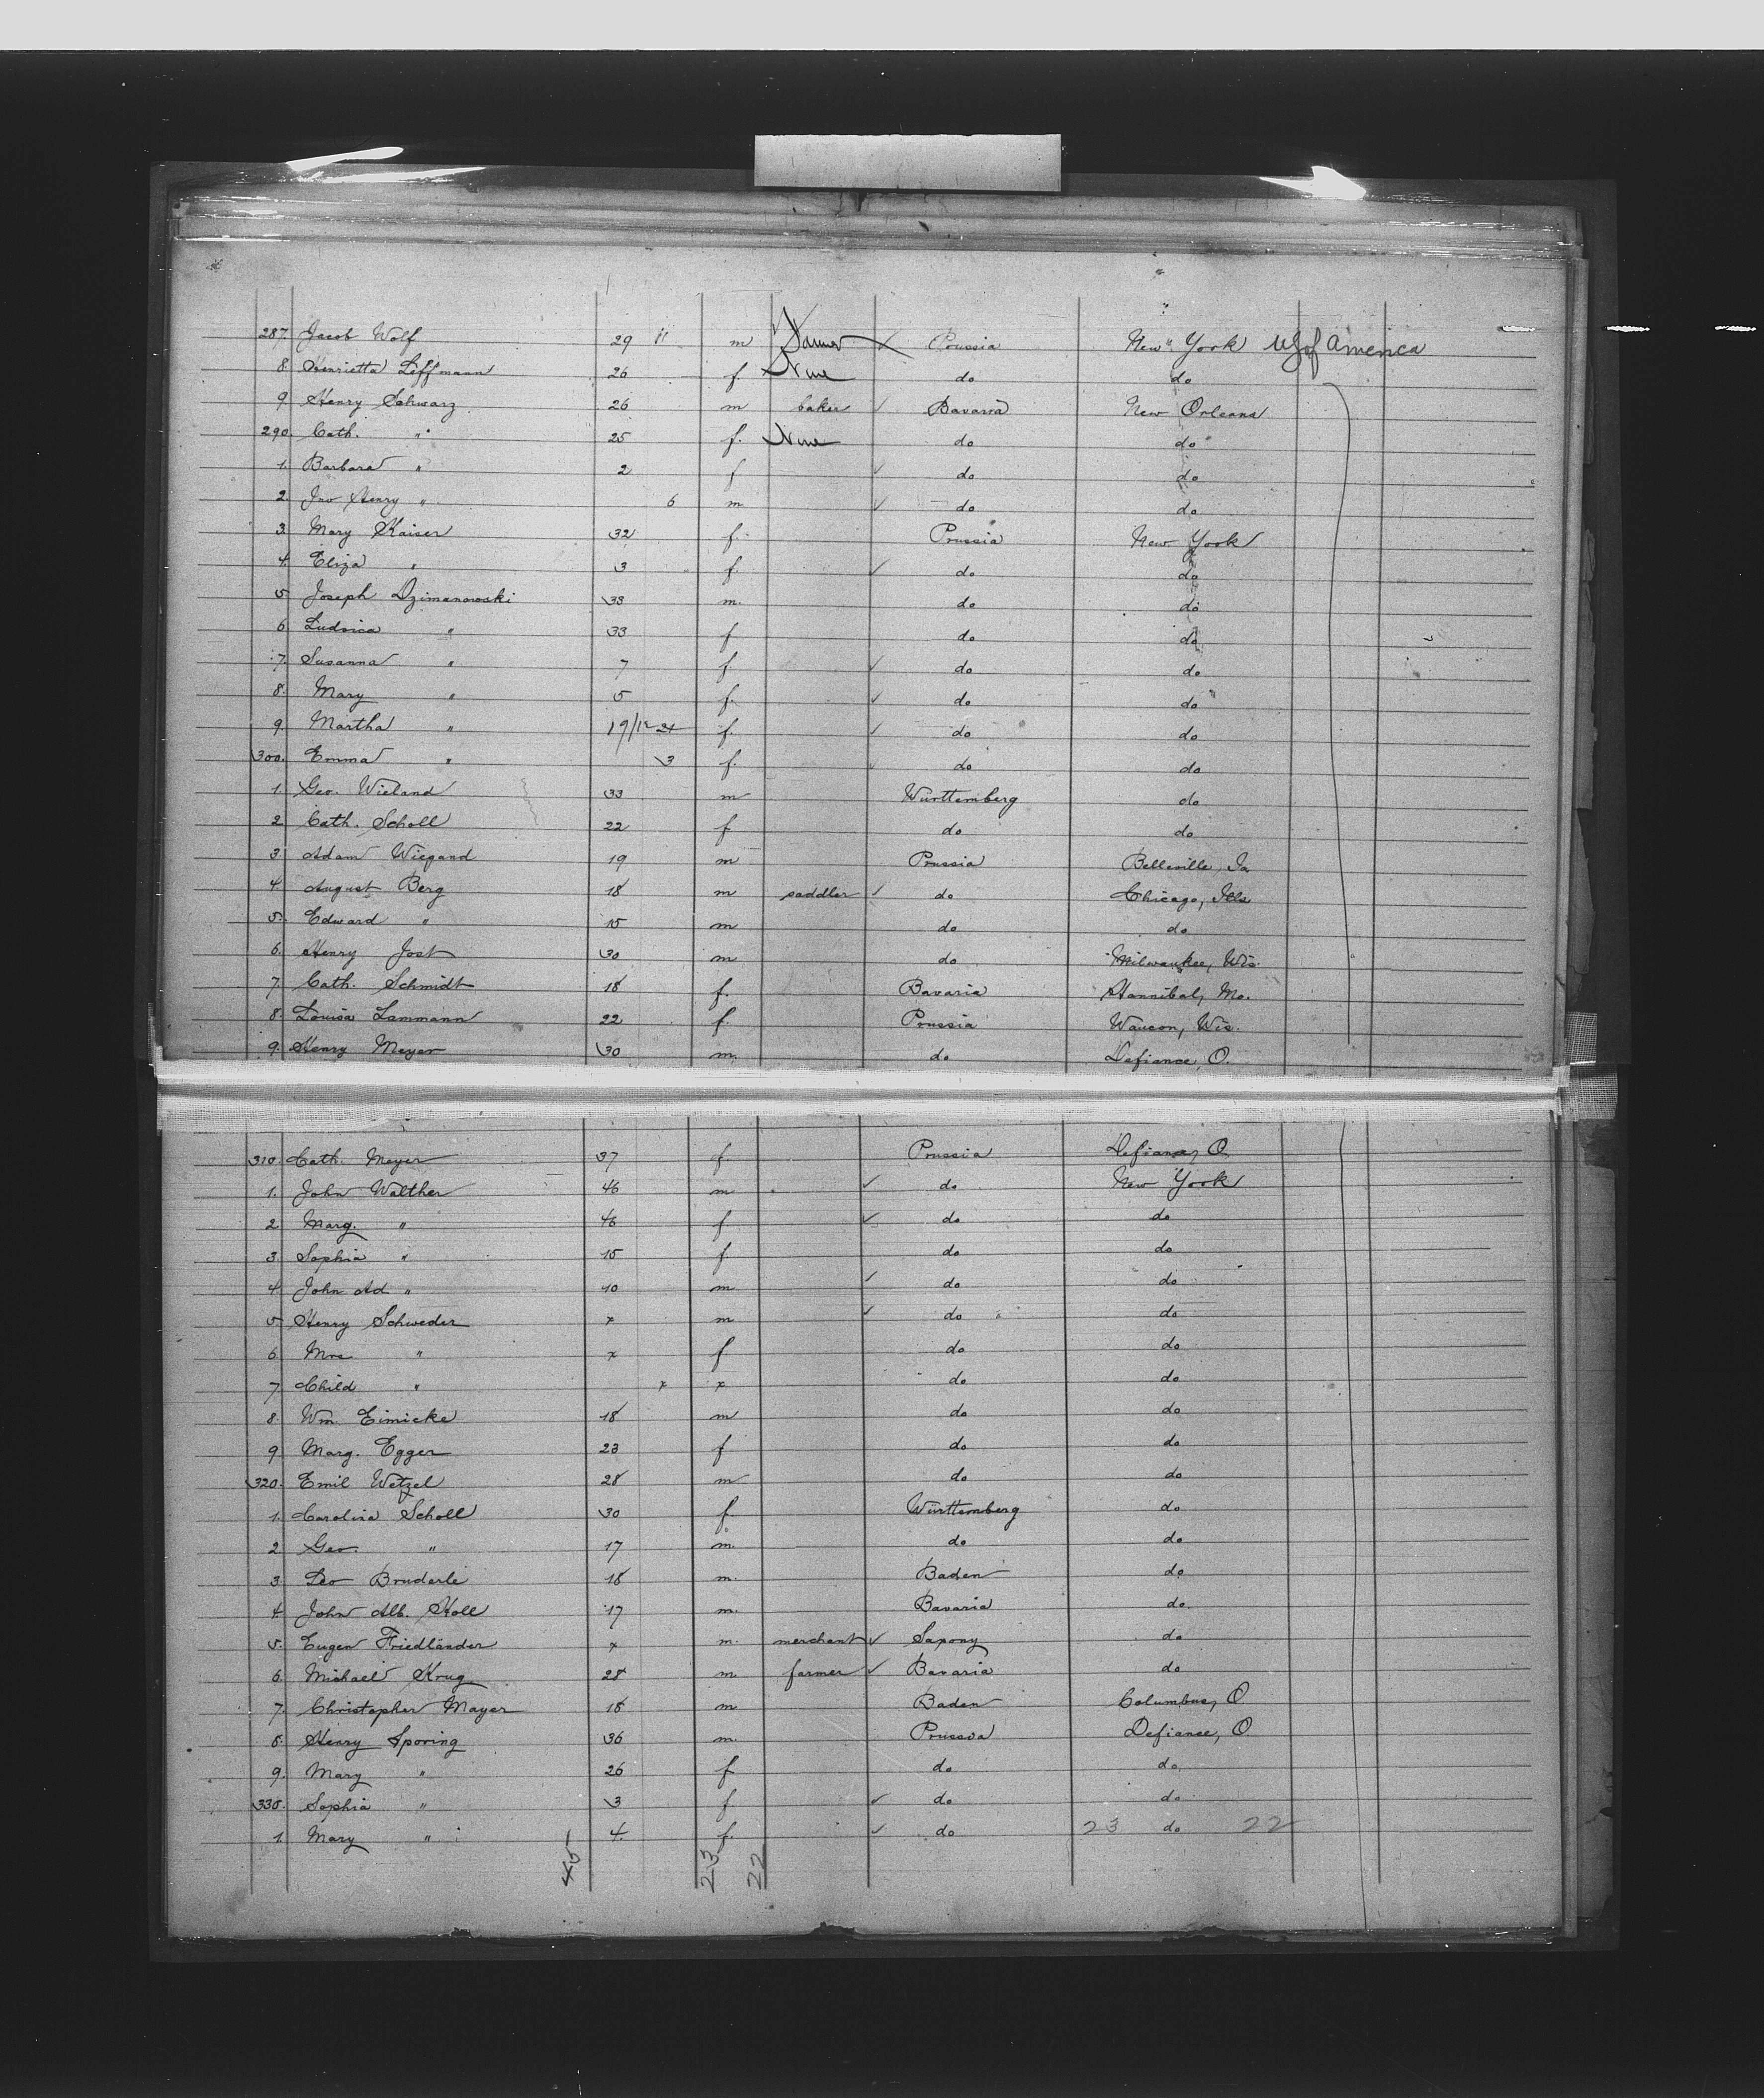 287. Jacob Wolf 29 11 m Farmer Prussia New York US of America
8 Henrietta Leffmann 26 f None do do
9 Henry Schwarz 26 m baker ✓ Bavaria New Orleans
290. Cath. " 25 f. None do do
1. Barbara " 2 f ✓ do do
2. Jno Henry " 6 m ✓ do do
3. Mary Kaiser 32 f. Prussia New York
4. Eliza " 3 f. ✓ do do
5 Joseph Dzimanowski 33 m. do do
6 Ludvica " 33 f do do
7. Susanna " 7 f. ✓ do do
8. Mary " 5 f. ✓ do do
9. Martha " 19/12 f. ✓ do do
300. Emma " 3 f. ✓ do do
1. Geo. Wieland 33 m Württemberg do
2 Cath. Scholl 22 f do do
3. Adam Wiegand 19 m Prussia Belleville, Ia
4. August Berg 18 m saddler ✓ do Chicago, Ills
5. Edward " 15 m do do
6. Henry Jost 30 m do Milwaukee, Wis.
7. Cath. Schmidt 18 f. Bavaria Hannibal, Mo.
8. Louisa Lammann 22 f. Prussia Wauson, Wis.
9. Henry Meyer 30 m. do Defiance, O.
310. Cath. Meyer 37 f Prussia Defiance, O.
1. John Walther 46 m ✓ do New York
2 Marg. " 46 f ✓ do do
3. Sophia " 15 f do do
4. John Ad " 10 m ✓ do do
5 Henry Schweder x m ✓ do do
6. Mrs " x f do do
7. Child " x x do do
8. Wm. Eimicke 18 m do do
9 Marg. Egger 23 f do do
320. Emil Wetzel 28 m do do
1. Carolina Scholl 30 f. Württemberg do
2 Geo. " 17 m. do do
3. Leo Bruderle 18 m. Baden do
4. John Alb. Holl 17 m. Bavaria do
5. Eugen Friedländer x m. merchant ✓ Saxony do
6. Michael Krug 28 m farmer ✓ Bavaria do
7. Christopher Mayer 18 m Baden Columbus, O
8. Henry Sporing 36 m. Prussia Defiance, O
9. Mary " 26 f do do
330. Sophia " 3 f. ✓ do do
1. Mary " 4. f. ✓ do 23 do 22
45 23 22